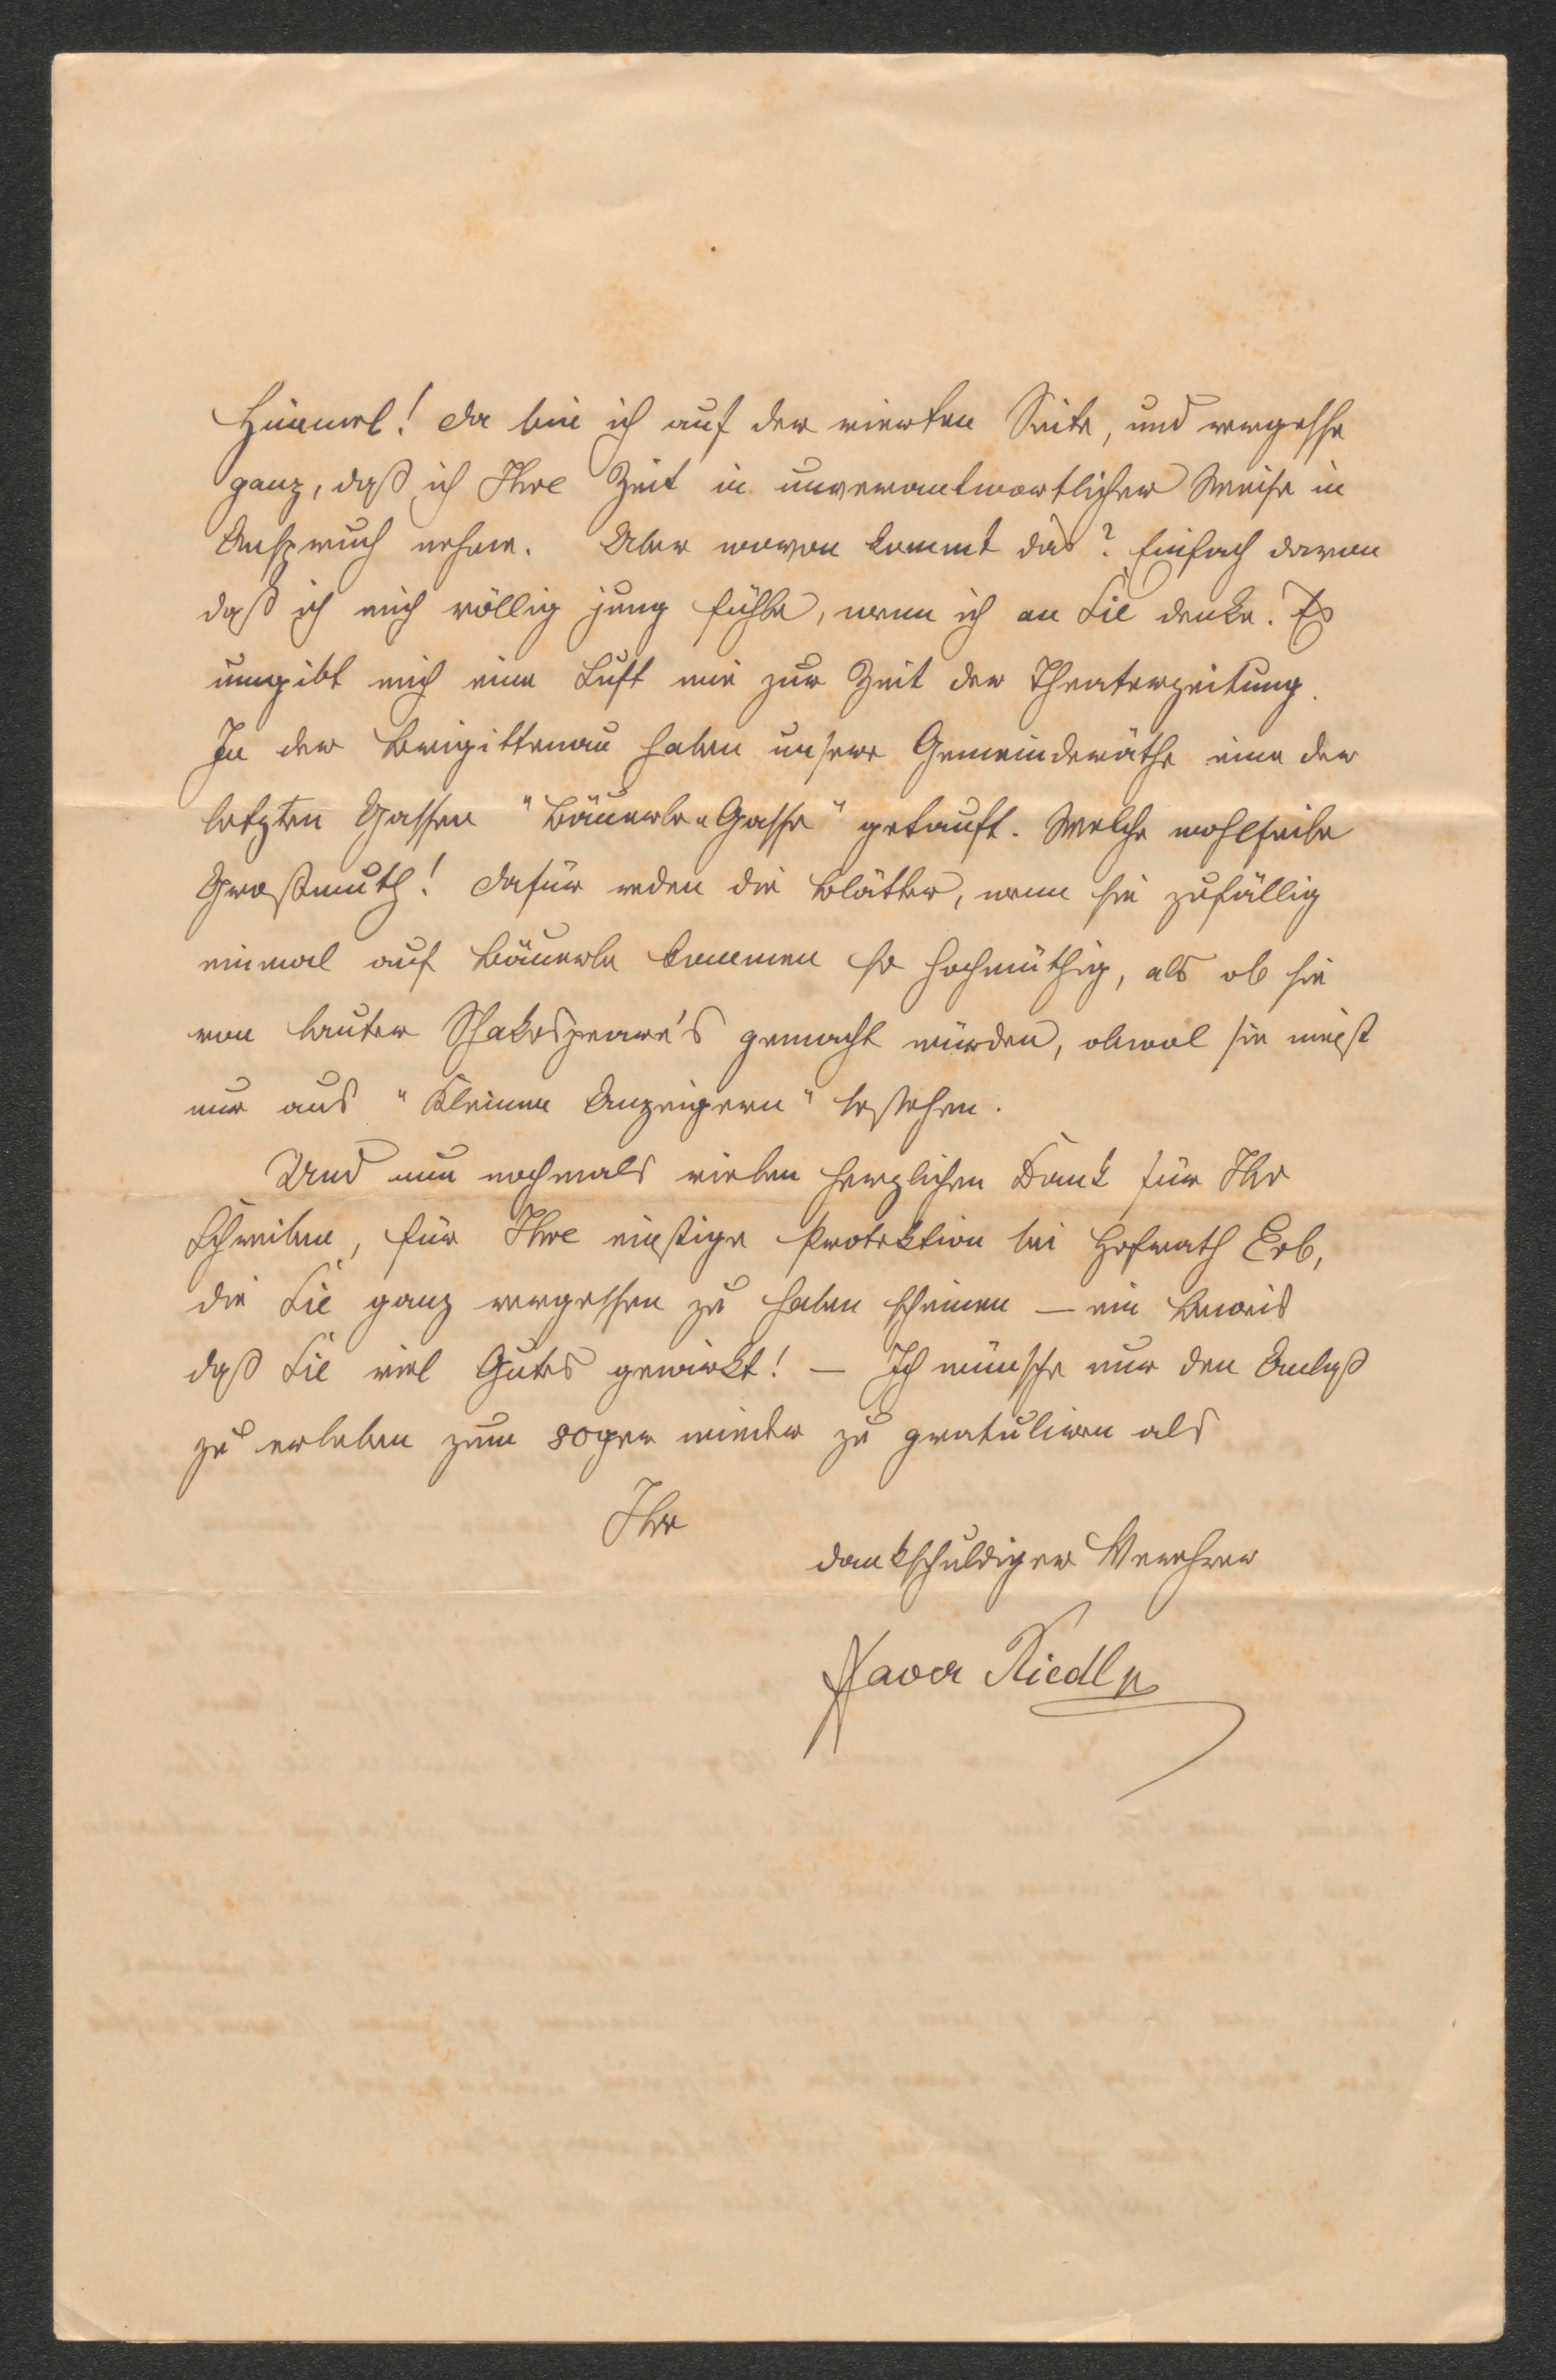 Himmel! Da bin ich auf der vierten Seite, und vergesse
ganz, daß ich Ihre Zeit in unverantwortlicher Weise in
Anspruch nehme. Aber wovon kommt das? Einfach davon
daß ich mich völlig jung fühle, wenn ich an Sie denke. Es
umgibt mich eine Luft wie zur Zeit der Theaterzeitung.
In der Brigittenau haben unsere Gemeinderäthe eine der
letzten Gassen "Bäuerle-Gasse" getauft. Welche wohlfeile
Großmuth! Dafür reden die Blätter, wenn sie zufällig
einmal auf Bäuerle kommen so hochmüthig, als ob sie
von lauter Shakespeare's gemacht würden, obwol sie meist
nur aus "Kleinen Anzeigern" bestehen.
Und nun nochmals vielen herzlichen Dank für Ihr
Schreiben, für Ihre einstige Protektion bei Hofrath Erb,
die Sie ganz vergessen zu haben scheinen — ein Beweis
daß Sie viel Gutes gewirkt! — Ich wünsche nur den Anlaß
zu erleben zum 80ger wieder zu gratuliren als
Ihr
dankschuldiger Verehrer
Xaver Riedl